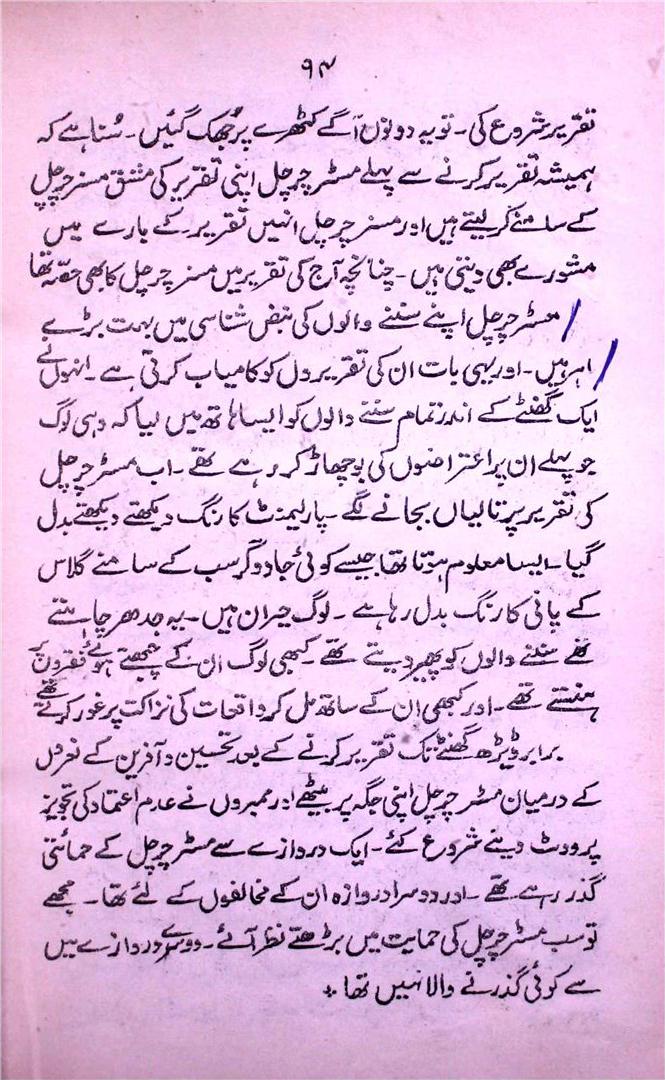 ۹۴
تقریر شروع کی۔ تو یہ دونوں آگے کٹھرے پر جھک گئیں۔ سُنا ہے کہ
ہمیشہ تقریر کرنے سے پہلے مسٹر چرچل اپنی تقریر کی مشق مسز چرچل
کے سامنے کر لیتے ہیں اور مسز چرچل انہیں تقریر کے بارے میں
مشورے بھی دیتی ہیں۔ چنانچہ آج کی تقریر میں مسز چرچل کا بھی حصّہ تھا
مسٹر چرچل اپنے سننے والوں کی نبض شناسی میں بہت بڑے
اہر ہیں۔ اور یہی بات ان کی تقریروں کو کامیاب کرتی ہے۔ انہوں نے
ایک گھنٹے کے اندر تمام سننے والوں کو ایسا ہاتھ میں لیا کہ وہی لوگ
جو پہلے ان پر اعتراضوں کی بوچھاڑ کر رہے تھے۔ اب مسٹر چرچل
کی تقریر پر تالیاں بجانے لگے۔ پارلیمنٹ کا رنگ دیکھتے دیکھتے بدل
گیا۔ ایسا معلوم ہوتا تھا جیسے کوئی جادوگر سب کے سامنے گلاس
کے پانی کا رنگ بدل رہا ہے۔ لوگ حیران ہیں۔ یہ جدھر چاہتے
تھے سننے والوں کو پھیر دیتے تھے۔ کبھی لوگ ان کے چبھتے ہوئے فقروں پر
ہنستے تھے۔ اور کبھی ان کے ساتھ مل کر واقعات کی نزاکت پر غور کرتے تھے
برابر ڈیڑھ گھنٹے تک تقریر کرنے کے بعد تحسین و آفرین کے نعروں
کے درمیان مسٹر چرچل اپنی جگہ پر بیٹھے اور ممبروں نے عدم اعتماد کی تجویز
پر ووٹ دینے شروع کئے۔ ایک دروازے سے مسٹر چرچل کے حمائتی
گذر رہے تھے۔ اور دوسرا دروازہ ان کے مخالفوں کے لئے تھا۔ مجھے
تو سب مسٹر چرچل کی حمایت میں بڑھتے نظر آئے۔ دوسرے دروازے میں
سے کوئی گذرنے والا نہیں تھا ۔